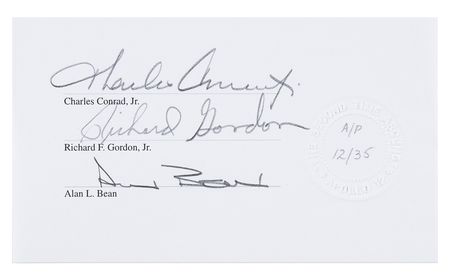 Charles Conrad Jr.
Charles Conrad, Jr.
Richard Gordon
Richard F. Gordon, Jr.
Alan Bean
Alan L. Bean
A/P
12/35